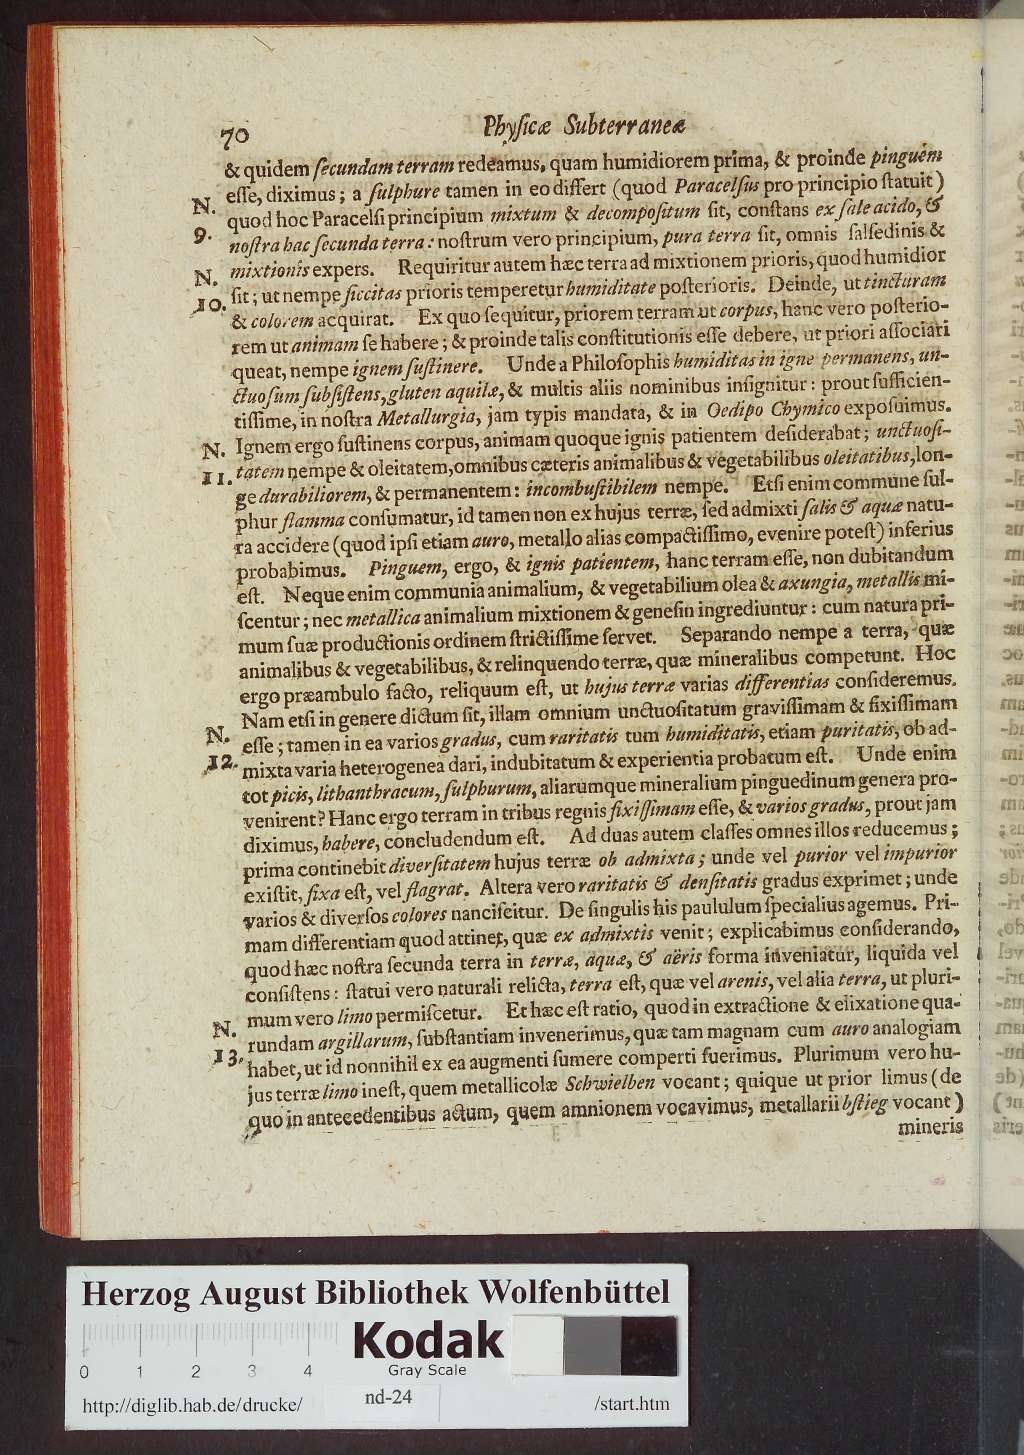 70 Phyſicæ Subterraneæ
& quidem ſecundam terram redeamus, quam humidiorem prima, & proinde pinguem
eſſe, diximus; a ſulphure tamen in eo differt (quod Paracelſus pro principio ſtatuit)
N. quod hoc Paracelſi principium mixtum & decompoſitum ſit, conſtans ex ſale acido, &
9. noſtra hac ſecunda terra: noſtrum vero principium, pura terra ſit, omnis ſalſedinis &
N. mixtionis expers. Requiritur autem hæc terra ad mixtionem prioris, quod humidior
10. ſit; ut nempe ſiccitas prioris temperetur humiditate poſterioris. Deinde, ut tincturam
& colorem acquirat. Ex quo ſequitur, priorem terram ut corpus, hanc vero poſterio-
rem ut animam ſe habere; & proinde talis conſtitutionis eſſe debere, ut priori aſſociari
queat, nempe ignem ſuſtinere. Unde a Philoſophis humiditas in igne permanens, un-
ctuoſum ſubſiſtens, gluten aquilæ, & multis aliis nominibus inſignitur: prout ſufficien-
tiſſime, in noſtra Metallurgia, jam typis mandata, & in Oedipo Chymico expoſuimus.
N. Ignem ergo ſuſtinens corpus, animam quoque ignis patientem deſiderabat; unctuoſi-
11. tatem nempe & oleitatem, omnibus cæteris animalibus & vegetabilibus oleitatibus, lon-
ge durabiliorem, & permanentem: incombuſtibilem nempe. Etſi enim commune ſul-
phur flamma conſumatur, id tamen non ex hujus terræ, ſed admixti ſalis & aquæ natu-
ra accidere (quod ipſi etiam auro, metallo alias compactiſſimo, evenire poteſt) inferius
probabimus. Pinguem, ergo, & ignis patientem, hanc terram eſſe, non dubitandum
eſt. Neque enim communia animalium, & vegetabilium olea & axungia, metallis mi-
ſcentur; nec metallica animalium mixtionem & geneſin ingrediuntur: cum natura pri-
mum ſuæ productionis ordinem ſtrictiſſime ſervet. Separando nempe a terra, quæ
animalibus & vegetabilibus, & relinquendo terræ, quæ mineralibus competunt. Hoc
ergo præambulo facto, reliquum eſt, ut hujus terræ varias differentias conſideremus.
N. Nam etſi in genere dictum ſit, illam omnium unctuoſitatum graviſſimam & fixiſſimam
eſſe; tamen in ea varios gradus, cum raritatis tum humiditatis, etiam puritatis, ob ad-
12. mixta varia heterogenea dari, indubitatum & experientia probatum eſt. Unde enim
tot picis, lithanthracum, ſulphurum, aliarumque mineralium pinguedinum genera pro-
venirent? Hanc ergo terram in tribus regnis fixiſſimam eſſe, & varios gradus, prout jam
diximus, habere, concludendum eſt. Ad duas autem claſſes omnes illos reducemus;
prima continebit diverſitatem hujus terræ ob admixta; unde vel purior vel impurior
exiſtit, fixa eſt, vel flagrat. Altera vero raritatis & denſitatis gradus exprimet; unde
varios & diverſos colores nanciſcitur. De ſingulis his paululum ſpecialius agemus. Pri-
mam differentiam quod attinet, quæ ex admixtis venit; explicabimus conſiderando,
quod hæc noſtra ſecunda terra in terræ, aquæ, & aëris forma inveniatur, liquida vel
conſiſtens: ſtatui vero naturali relicta, terra eſt, quæ vel arenis, vel alia terra, ut pluri-
mum vero limo permiſcetur. Et hæc eſt ratio, quod in extractione & elixatione qua-
N. rundam argillarum, ſubſtantiam invenerimus, quæ tam magnam cum auro analogiam
13. habet, ut id nonnihil ex ea augmenti ſumere comperti fuerimus. Plurimum vero hu-
jus terræ limo ineſt, quem metallicolæ Schwielben vocant; quique ut prior limus (de
quo in antecedentibus actum, quem amnionem vocavimus, metallarii bſtieg vocant)
mineris
Herzog August Bibliothek Wolfenbüttel
Kodak
Gray Scale
0 1 2 3 4
http://diglib.hab.de/drucke/ nd-24 /start.htm